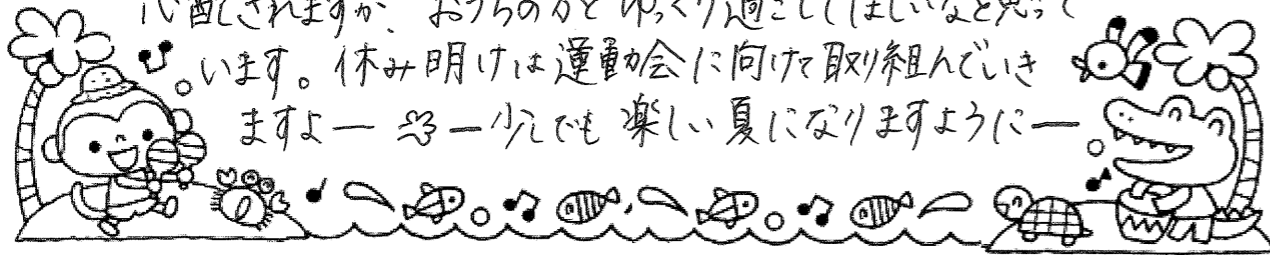 心配されますが、おうちの方とゆっくり過ごしてほしいなと思って
います。休み明けは運動会に向けて取り組んでいき
ますよー 少しでも楽しい夏になりますようにー